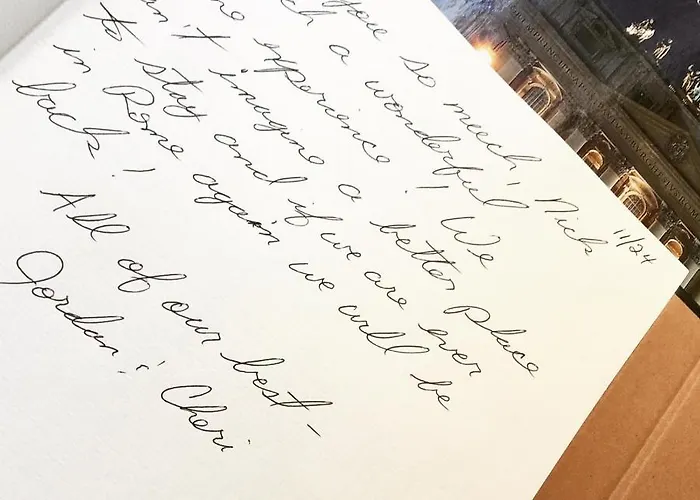 11/24
so much, Nick
a wonderful
experience! We
an't imagine a better place
to stay and if we are ever
in Rome again we will be
back!
All of our best-
Jordan & Cheri